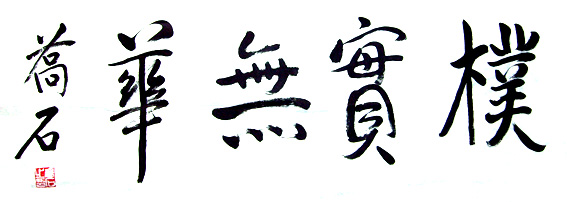 樸實無華
蕎石